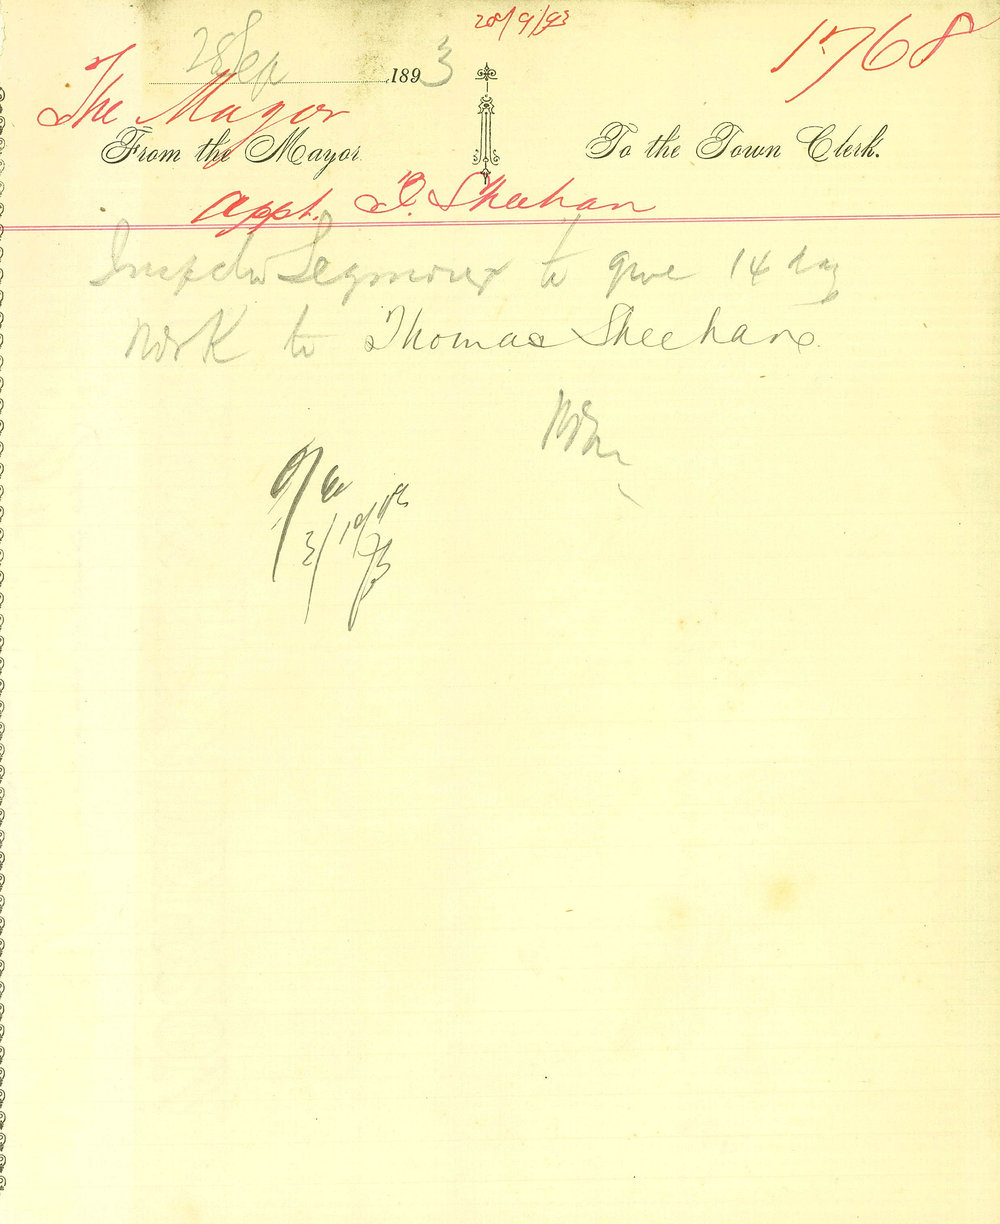 28/9/93
1768
28 Sep 1893
The Mayor
From the Mayor To the Town Clerk.
Appt. T. Sheehan
Inspector Seymour to give 14 day
work to Thomas Sheehan
3/10/93